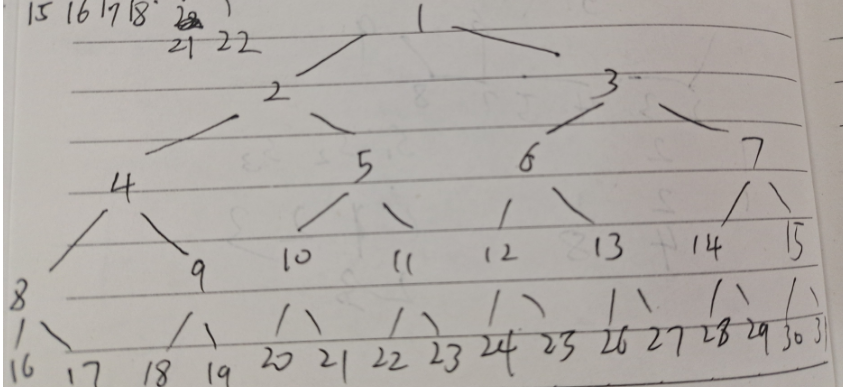 15 16 17 18
21 22
1
2 3
4 5 6 7
8 9 10 11 12 13 14 15
16 17 18 19 20 21 22 23 24 25 26 27 28 29 30 31